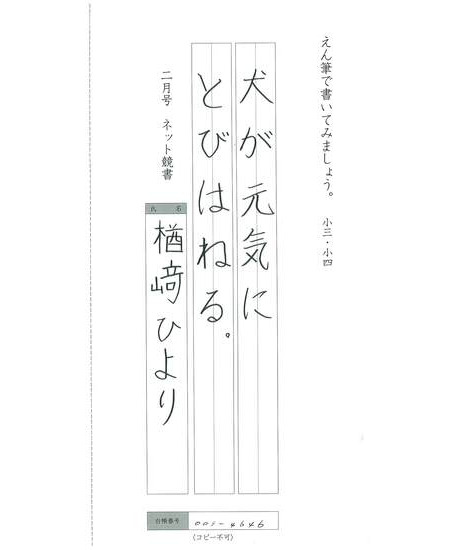 えん筆で書いてみましょう。 小三・小四
犬が元気に
とびはねる。
二月号 ネット競書
氏名
楢﨑ひより
台帳番号 001-4646
(コピー不可)